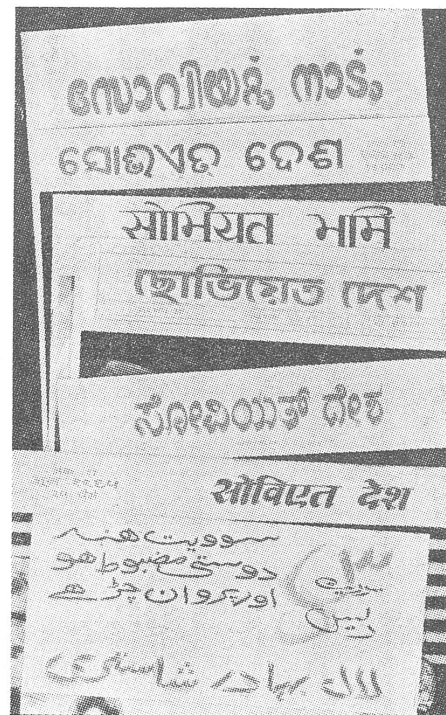 സോവിയറ്റ് നാട്
ସୋଭିଏତ ଦେଶ
सोभियत भूमि
ছোভিয়েত দেশ
ಸೋವಿಯತ್ ದೇಶ
सोविएत देश
سوویت ھند
دوستی مضبوط ھو
اور پروان چڑھے
سوویت
دیس
لال بہادر شاستری